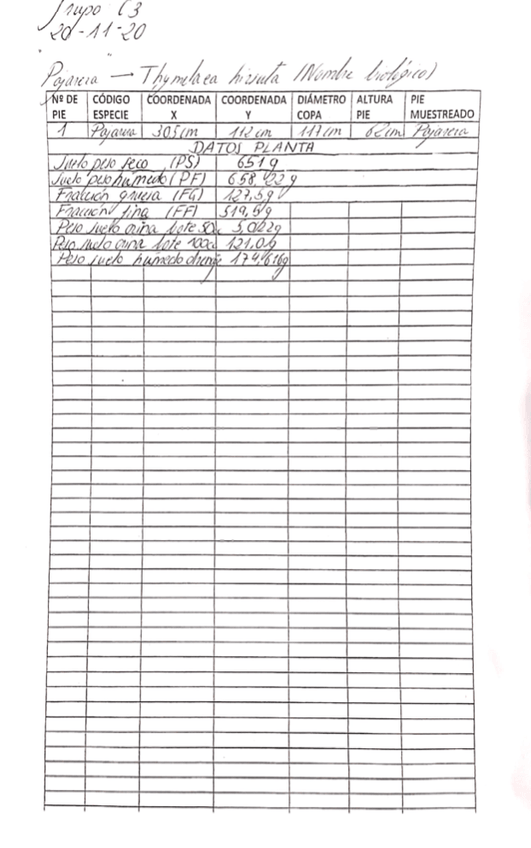 Grupo C3
20-11-20
Pajarera → Thymelaea hirsuta (Nombre biológico)
Nº DE PIE CÓDIGO ESPECIE COORDENADA X COORDENADA Y DIÁMETRO COPA ALTURA PIE PIE MUESTREADO
1 Pajarera 305cm 112cm 117cm 62cm Pajarera
DATOS PLANTA
Suelo peso seco (PS) 651g
Suelo peso húmedo (PF) 658,22g
Fracción gruesa (FG) 127,5g
Fracción fina (FF) 519,5g
Peso suelo bote 3,022g
Peso suelo bote 121,0g
Peso suelo húmedo 174,616g